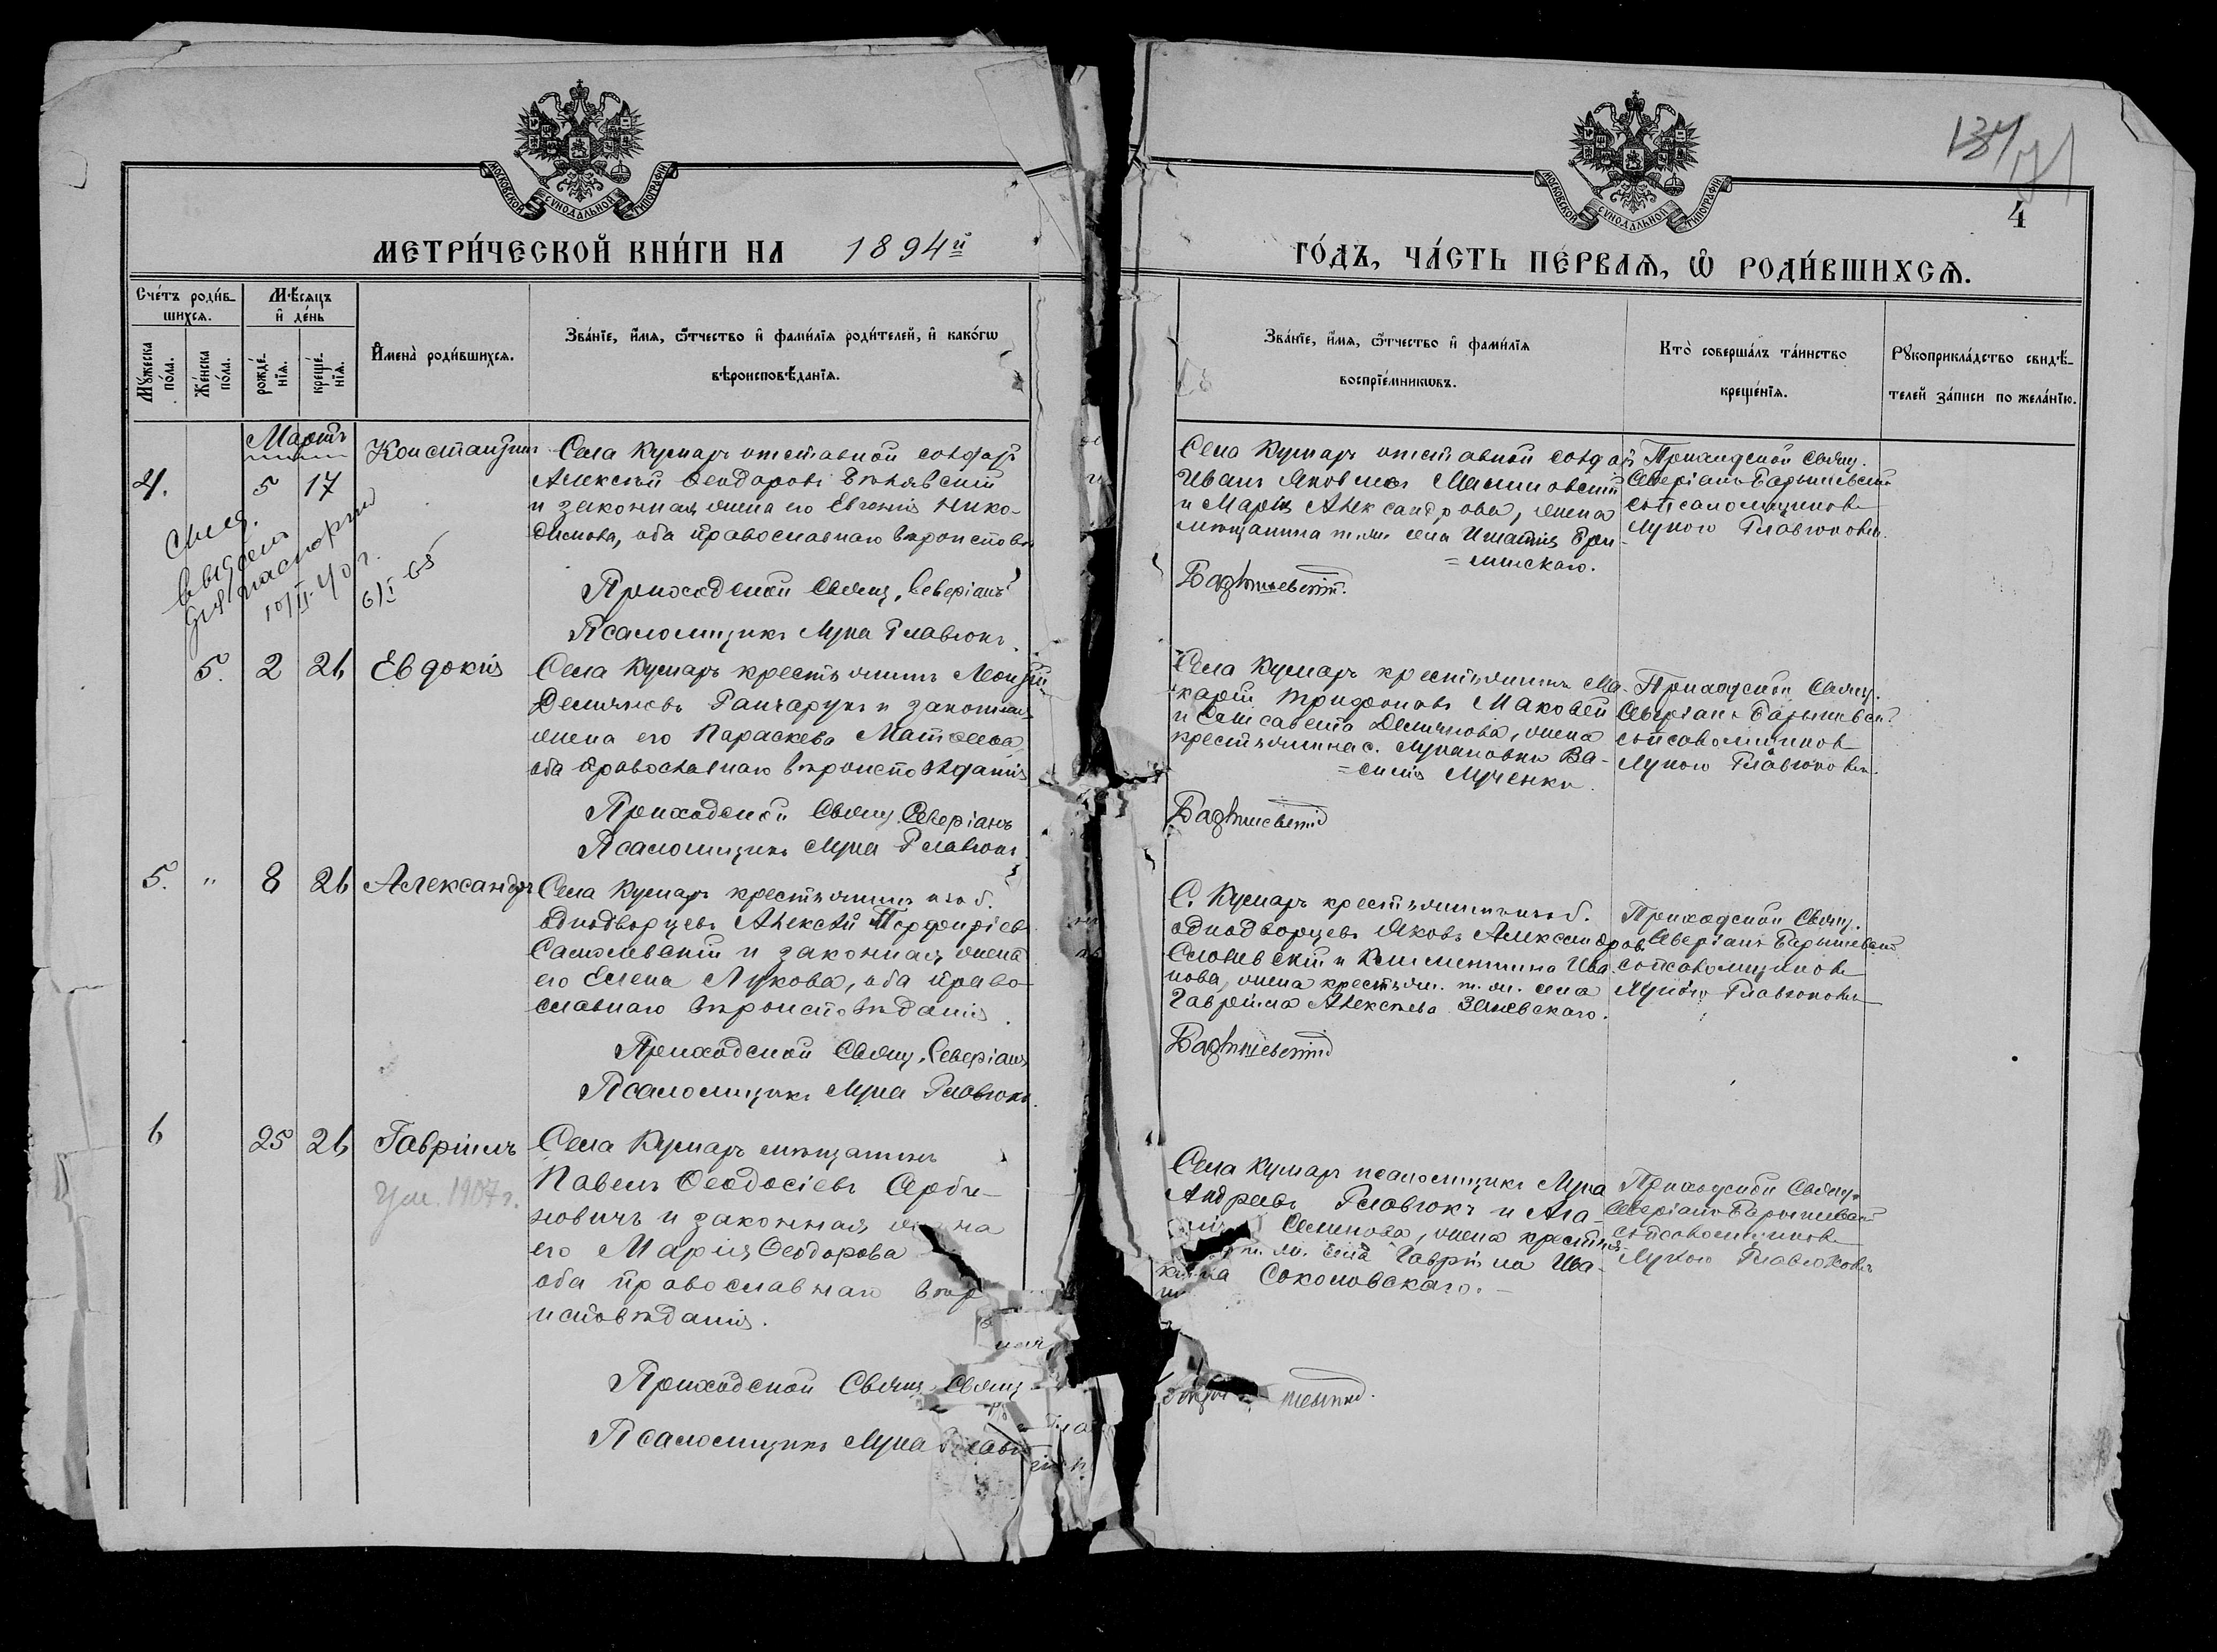 МОСКОВСКОЙ СУНОДАЛЬНОЙ ТИПОГРАФІИ
МЕТРИ́ЧЕСКОЙ КНИ́ГИ НА 1894й
Сче́тъ роди́вшихсѧ.
Мѣ́сѧцъ и҆ де́нь
Мꙋ́жеска по́ла.
Же́нска по́ла.
рожде́нїѧ.
креще́нїѧ.
И҆мена̀ роди́вшихсѧ.
Зва́нїе, и҆́мѧ, ѻ҆́тчество и҆ фами́лїѧ роди́телей, и҆ како́гѡ
вѣроисповѣ́данїѧ.
Мартъ
4.
5 17
Константинъ
Села Кумаръ отставной солдатъ
Алексѣй Ѳеодоровъ
и законная жена его Евгенія Нико-
димова, оба православнаго вѣроисповѣ
выдано
10/II-40 г.
6/I-65
Приходской Священ. Северіанъ
Псаломщикъ Лука Главюкъ.
5. 2 26 Евдокія
Села Кумаръ крестьянинъ Моисей
Демяновъ Ганчарукъ и законная
жена его Параскева Матѳеева
оба православнаго вѣроисповѣданія
Приходской Свящ. Северіанъ
Псаломщикъ Лука Главюкъ.
5. " 8 26 Александръ
Села Кумаръ крестьянинъ изъ б.
однодворцевъ Алексѣй Порфиріевъ
и законная жена
его Елена Лукова, оба право-
славнаго вѣроисповѣданія.
Приходской Священ. Северіанъ
Псаломщикъ Лука Главюкъ.
6 25 26 Гавріилъ
Ум. 1907 г.
Села Кумаръ мѣщанинъ
Павелъ Ѳеодосіевъ Арбу-
новичъ и законная жена
его Марія Ѳеодорова
оба православнаго вѣр
исповѣданія.
Приходской Свящ.
Псаломщикъ Лука Главю
МОСКОВСКОЙ СУНОДАЛЬНОЙ ТИПОГРАФІИ
4
ГО́ДЪ, ЧА́СТЬ ПЕ́РВАѦ, Ѡ҆ РОДИ́ВШИХСѦ.
Зва́нїе, и҆́мѧ, ѻ҆́тчество и҆ фами́лїѧ
воспрїе́мникѡвъ.
Кто̀ соверша́лъ та́инство
креще́нїѧ.
Рꙋкоприкла́дство свидѣ́-
телей за́писи по жела́нїю.
Села Кумаръ отставной солдатъ
Иванъ Яковлевъ
и Марія Александрова, жена
мѣщанина т. ж. села Игнатія Гри-
=
Приходской Священ.
Северіанъ Барышевскій
съ псаломщикомъ
Лукою Главюкомъ.
Села Кумаръ крестьянинъ Ма-
карій Трифоновъ Маковей
и Елисавета Демянова, жена
крестьянина с. Лукановки Ва-
=силія Луценки.
Приходской Священ.
Северіанъ Барышевскій
съ псаломщикомъ
Лукою Главюкомъ.
С. Кумаръ крестьянинъ изъ б.
однодворцевъ Яковъ Александровъ
и Клементина Ива
нова, жена крестьян. т. ж. села
Гавріила Алексѣева Залевскаго.
Приходской Свящ.
Северіанъ Барышевскій
съ псаломщикомъ
Лукою Главюкомъ
Села Кумаръ псаломщикъ Лука
Андреевъ Главюкъ и Ага-
Семенова, жена крестьян
т. ж. села Гавріила Ива-
Соколовскаго.
Приходской Свящ.
Северіанъ Барышевскій
съ псаломщикомъ
Лукою Главюкомъ